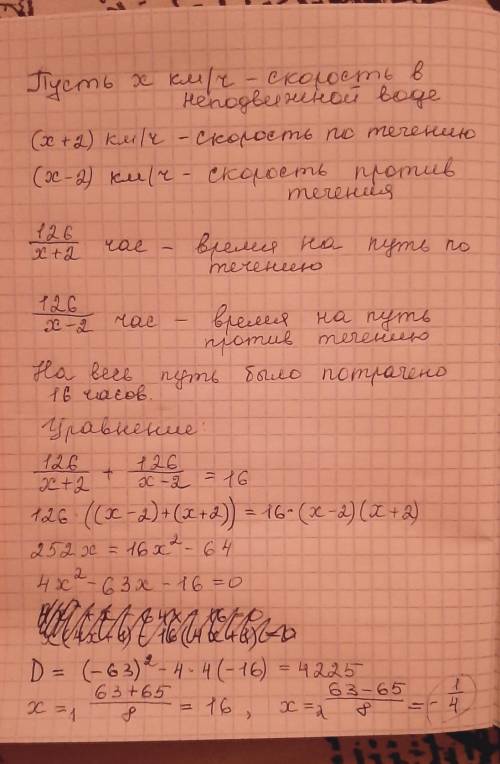 Пусть x км/ч – скорость в
неподвижной воде
(x+2) км/ч – скорость по течению
(x-2) км/ч – скорость против
течения
126/(x+2) час – время на путь по
течению
126/(x-2) час – время на путь
против течению
На весь путь было потрачено
16 часов.
Уравнение:
126/(x+2) + 126/(x-2) = 16
126·((x-2)+(x+2)) = 16·(x-2)(x+2)
252x = 16x² - 64
4x² - 63x - 16 = 0
D = (-63)² - 4·4(-16) = 4225
x₁ = (63+65)/8 = 16, x₂ = (63-65)/8 = -1/4